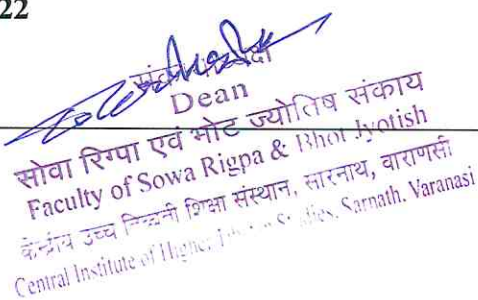 22
Dean
सोवा रिग्पा एवं भोट ज्योतिष संकाय
Faculty of Sowa Rigpa & Bhot Jyotish
केन्द्रीय उच्च तिब्बती शिक्षा संस्थान, सारनाथ, वाराणसी
Central Institute of Higher Studies, Sarnath, Varanasi